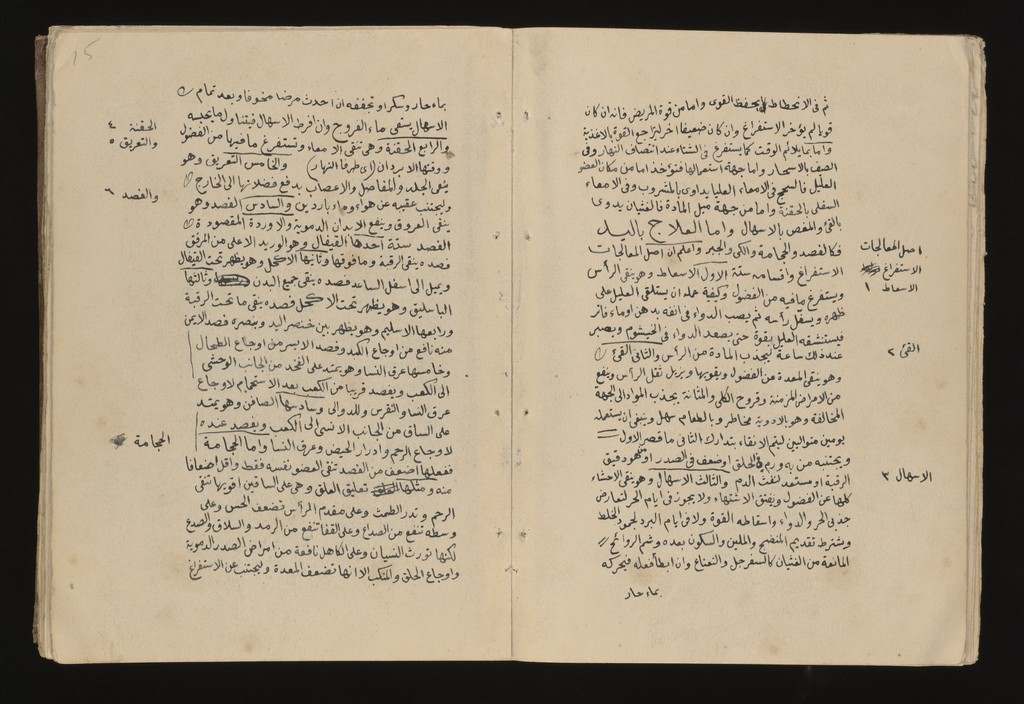 ثم فى الانحطاط يحفظ القوى واما من قوة المريض فانه ان كان
قويا لم يؤخر الاستفراغ وان كان ضعيفا اخر ليتراجع القوة بالاغذية
واما بما يلائم الوقت كما يستفرغ فى الشتاء عند انتصاف النهار وفى
الصيف بالاسحار واما جهة استعمالها فتؤخذ اما من مكان العضو
العليل فالسحج فى الامعاء العليا يداوى بالمشروب وفى الامعاء
السفلى بالحقنة واما من جهة ميل المادة فالغثيان يدوى
بالقئ والمغص بالاسهال واما العلاج باليد
فكالفصد والحجامة والكى والجبر واعلم ان اصل المعالجات
الاستفراغ واقسامه ستة الاول الاسعاط وهو ينقى الرأس
ويستفرغ ما فيه من الفضول وكيفية عمله ان يستلقى العليل على
ظهره ويسفل رأسه ثم يصب الدواء فى انفه بدهن او ماء فاتر
فيستنشقه العليل بقوة حتى يصعد الدواء فى الخيشوم ويصبر
عند ذلك ساعة ليجذب المادة من الرأس والثانى القئ
وهو ينقى المعدة عن الفضول ويقويها ويزيل ثقل الرأس وينفع
من الامراض المزمنة وقروح الكلى والمثانة يجذب المواد الى الجهة
المخالفة وهو بالادوية مخاطر وبالطعام سهل وينبغى ان يستعمل
يومين متواليين ليتم الانقاء بتدارك الثانى ما قصر الاول
ويجتنبه من به ورم فى الحلق او ضعف فى الصدر او هو دقيق
الرقبة او مستعد لنفث الدم والثالث الاسهال وهو ينقى الاحشاء
كلها عن الفضول ويفتق الاشتهاء ولا يجوز فى ايام الحر لتعارض
جذبى الحر والدواء واسقاطه القوة ولا فى ايام البرد لجمود الخلط
ويشترط تقديم المنضج والملين والسكون بعده وشم الروائح
المانعة من الغثيان كالسفرجل والنعناع وان ابطأ فعله فيحركه
بماء حار
اصل المعالجات
الاستفراغ
الاسعاط ١
القئ ٢
الاسهال ٣
١٥
بماء حار وسكر او تجففه ان احدث مرضا مخوفا وبعد تمام
الاسهال يسقى ماء الفروج وان افرط الاسهال فيتناول ما يحبسه
والرابع الحقنة وهى تنقى الامعاء وتستفرغ ما فيها من الفضول
ووقتها الابردان (اى طرفا النهار) والخامس التعريق وهو
ينقى الجلد والمفاصل والاعصاب بدفع فضلاتها الى الخارج
وليجتنب عقيبه عن هواء وماء باردين والسادس الفصد وهو
ينقى العروق وينفع الابدان الدموية والاوردة المقصودة
الفصد ستة احدها القيفال وهو الوريد الاعلى من المرفق
فصده ينقى الرقبة وما فوقها وثانيها الاكحل وهو يظهر تحت القيفال
ويميل الى اسفل الساعد فصده ينقى جميع البدن وثالثها
الباسليق وهو يظهر تحت الاكحل فصده ينقى ما تحت الرقبة
ورابعها الاسليم وهو يظهر بين خنصر اليد وبنصره فصد الايمن
منه نافع من اوجاع الكبد وفصد الايسر من اوجاع الطحال
وخامسها عرق النسا وهو يمتد على الفخذ من الجانب الوحشى
الى الكعب ويفصد قريبا من الكعب بعد الاستحمام لاوجاع
عرق النسا والنقرس وللدوالى وسادسها الصافن وهو يمتد
على الساق من الجانب الانسى الى الكعب ويفصد عنده
لاوجاع الرحم وادرار الحيض وعرق النسا واما الحجامة
ففعلها اضعف من الفصد تنقى العضو نفسه فقط واقل اضعافا
منه ومثلها تعليق العلق وهى على الساقين اقويها تنقى
الرحم وتدر الطمث وعلى مقدم الرأس تضعف الحس وعلى
وسطه تنفع من الصداع وعلى القفا تنفع من الرمد والسلاق والصدع
لكنها تورث النسيان وعلى الكاهل نافعة من امراض الصدر الدموية
واوجاع الحلق والمنكب الا انها تضعف المعدة وليجتنب عن الاستفراغ
الحقنة ٤
والتعريق ٥
والفصد ٦
الحجامة